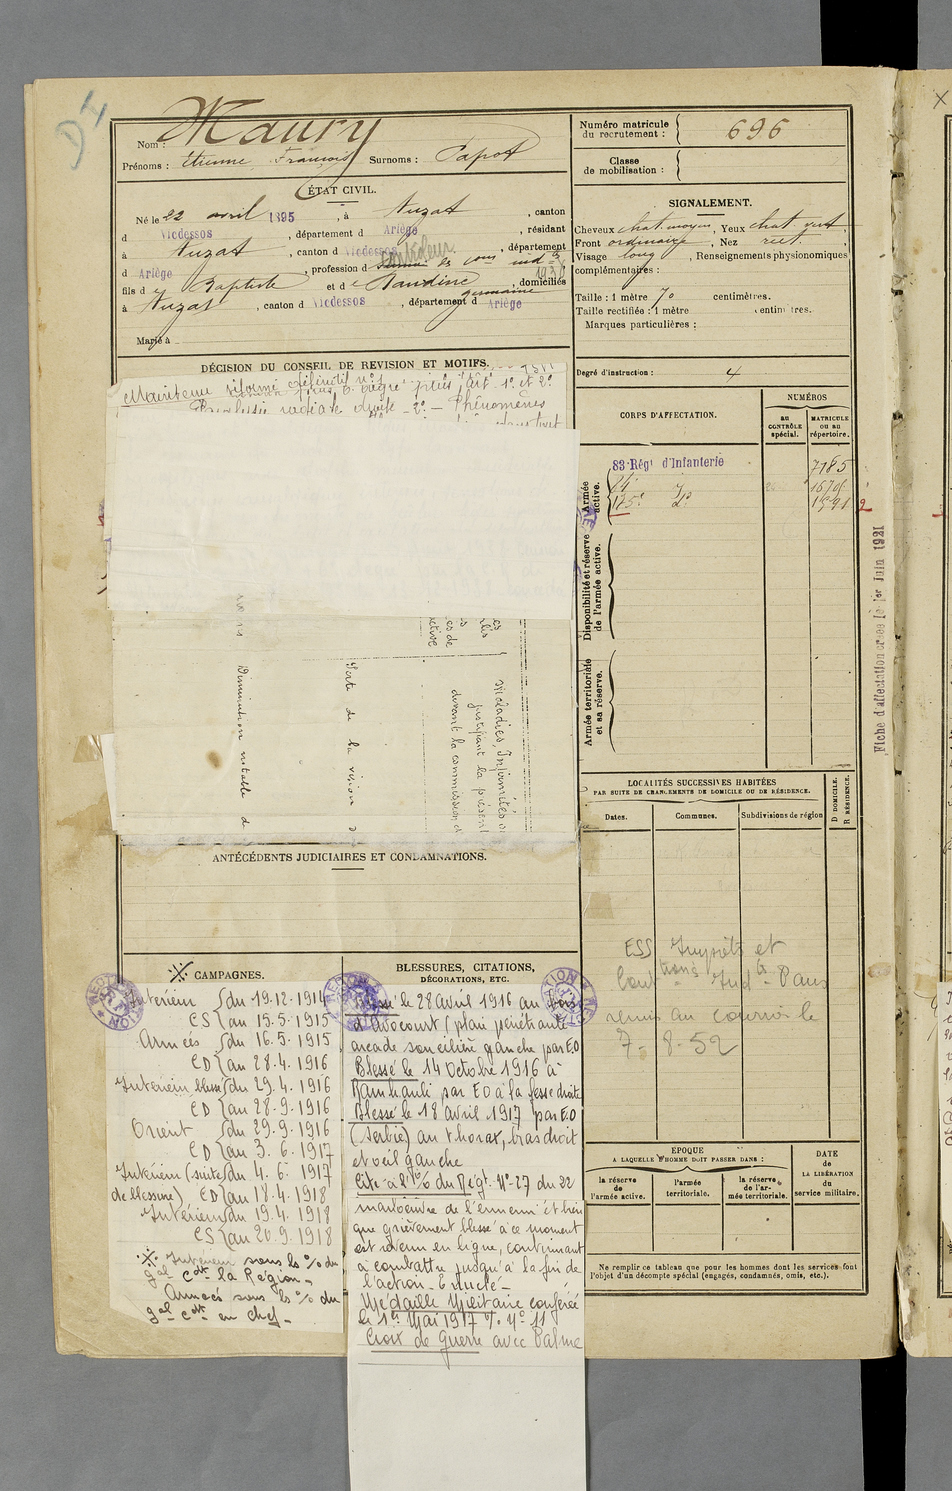 D4
Nom : Maury
Prénoms : Etienne François Surnoms : Papot
ÉTAT CIVIL.
Né le 22 avril 1895, à Auzat, canton
d Vicdessos, département d Ariège, résidant
à Auzat, canton d Vicdessos, département
d Ariège, profession d Contrôleur
fils d Baptiste et d domiciliés
à Auzat, canton d Vicdessos, département d Ariège
Marié à
Numéro matricule du recrutement : 696
Classe de mobilisation :
SIGNALEMENT.
Cheveux chat. moyen, Yeux chat vert,
Front ordinaire, Nez rect.,
Visage long, Renseignements physionomiques
complémentaires :
Taille : 1 mètre 70 centimètres.
Taille rectifiée : 1 mètre centimètres.
Marques particulières :
Degré d'instruction : 4
DÉCISION DU CONSEIL DE REVISION ET MOTIFS.
Maintenu réformé définitif n°1
Paralysie radiale droite - 2° - Phénomènes
Diminution notable d
Perte de la vision d
Maladies, Infirmités o
justifiant la présent
devant la commission d
CORPS D'AFFECTATION.
NUMÉROS
AU CONTRÔLE spécial.
MATRICULE OU AU répertoire.
Armée active.
83 Régt d'Infanterie 7185
Disponibilité et réserve de l'armée active.
Armée territoriale et sa réserve.
Fiche d'affectation créée le 1er Juin 1921
LOCALITÉS SUCCESSIVES HABITÉES
PAR SUITE DE CHANGEMENTS DE DOMICILE OU DE RÉSIDENCE.
Dates. Communes. Subdivisions de région
D DOMICILE. R RÉSIDENCE.
ESS Impôts et
Contions Indtes Paris
remis au courrier le
7-8-52
ANTÉCÉDENTS JUDICIAIRES ET CONDAMNATIONS.
CAMPAGNES.
Intérieur du 19.12.1914
CS au 15.5.1915
Armées du 16.5.1915
CD au 28.4.1916
Intérieur blessé du 29.4.1916
CD au 28.9.1916
Orient du 29.9.1916
CD au 3.6.1917
Intérieur (suite du 4.6.1917
de blessure) CD au 18.4.1918
Intérieur du 19.4.1918
CS au 20.9.1918
Intérieur sous les % du
gal cdt la Région -
Armées sous les % du
gal cdt en chef -
BLESSURES, CITATIONS,
DÉCORATIONS, ETC.
Blessé le 28 avril 1916 au bois
d'Avocourt (plaie pénétrante
arcade sourcilière gauche par EO
Blessé le 14 Octobre 1916 à
par EO à la fesse droite
Blessé le 18 avril 1917 par EO
(Serbie) au thorax, bras droit
et oeil gauche
Cité à l'% du Régt N°27 du 22
de l'ennemi et bien
que grièvement blessé à ce moment
est revenu en ligne, continuant
à combattre jusqu'à la fin de
l'action -
Médaille Militaire conférée
le 1er Mai 1917 % N° 11
Croix de Guerre avec Palme
EPOQUE
A LAQUELLE L'HOMME DOIT PASSER DANS :
la réserve de l'armée active.
l'armée territoriale.
la réserve de l'armée territoriale.
DATE de LA LIBÉRATION du service militaire.
Ne remplir ce tableau que pour les hommes dont les services font
l'objet d'un décompte spécial (engagés, condamnés, omis, etc.).